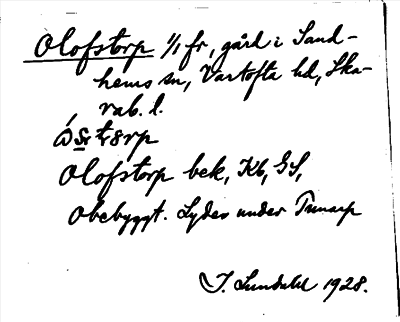 Olofstorp 1/1 fr, gård i Sand-
hems sn, Vartofta hd, Ska-
rab. l.
Olofstorp bek, Kb, GS,
Obebyggt. Lydes under Tunarp
J. Lundahl 1928.